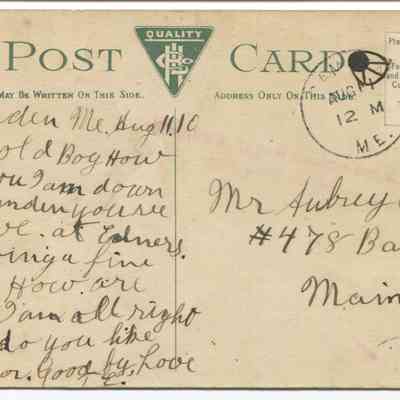 POST CARD
QUALITY
MAY BE WRITTEN ON THIS SIDE.
ADDRESS ONLY ON THIS
AUG
12 M
ME.
den Me. Aug 11, 10
old Boy How
I am down
mden you see
at Edners.
ving a fine
How are
I am all right
do you like
or. Good by, Love
E.
Mr Aubrey
#478 Ba
Main